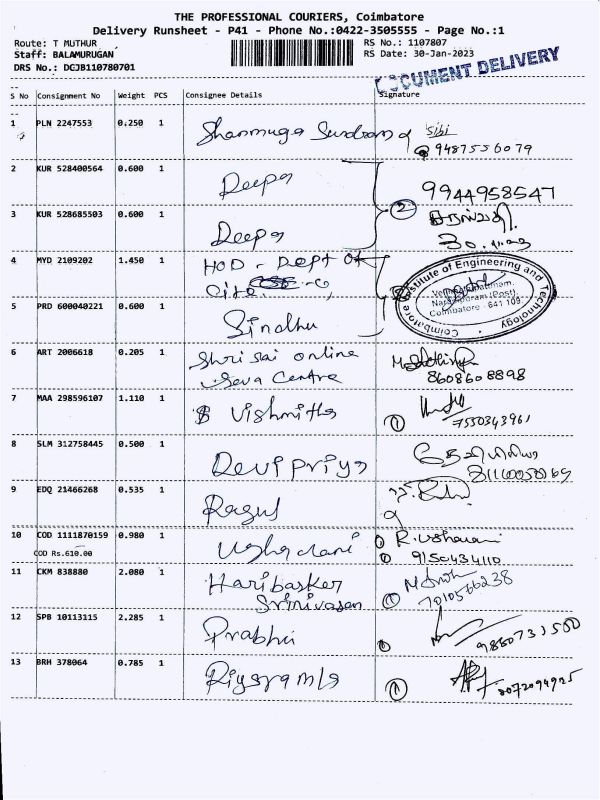 THE PROFESSIONAL COURIERS, Coimbatore
Delivery Runsheet - P41 - Phone No.:0422-3505555 - Page No.:1
Route: T MUTHUR RS No.: 1107807
Staff: BALAMURUGAN RS Date: 30-Jan-2023
DRS No.: DCJB110780701
DOCUMENT DELIVERY
S No Consignment No Weight PCS Consignee Details Signature
1 PLN 2247553 0.250 1 Shanmuga Sundram Sibi
9487556079
2 KUR 528400564 0.600 1 Deepa 9944958547
3 KUR 528685503 0.600 1 Deepa 2
4 MYD 2109202 1.450 1 HOD - Dept of
Cite.
Coimbatore Institute of Engineering and Technology
Coimbatore - 641 109
5 PRD 600040221 0.600 1 Sindhu
6 ART 2006618 0.205 1 Shri Sai online
Seva Centre
8608608898
7 MAA 298596107 1.110 1 Vishmitha
1 7550343961
8 SLM 312758445 0.500 1 Devi priya
9 EDQ 21466268 0.535 1 Ragul
10 COD 1111870159 0.980 1 Usha rani R. Usharani
COD Rs.610.00 9150434110
11 CKM 838880 2.080 1 Haribasker
Srinivasan
7010566238
12 SPB 10113115 2.285 1 Prabhu
13 BRH 378064 0.785 1 Riyasramla
1